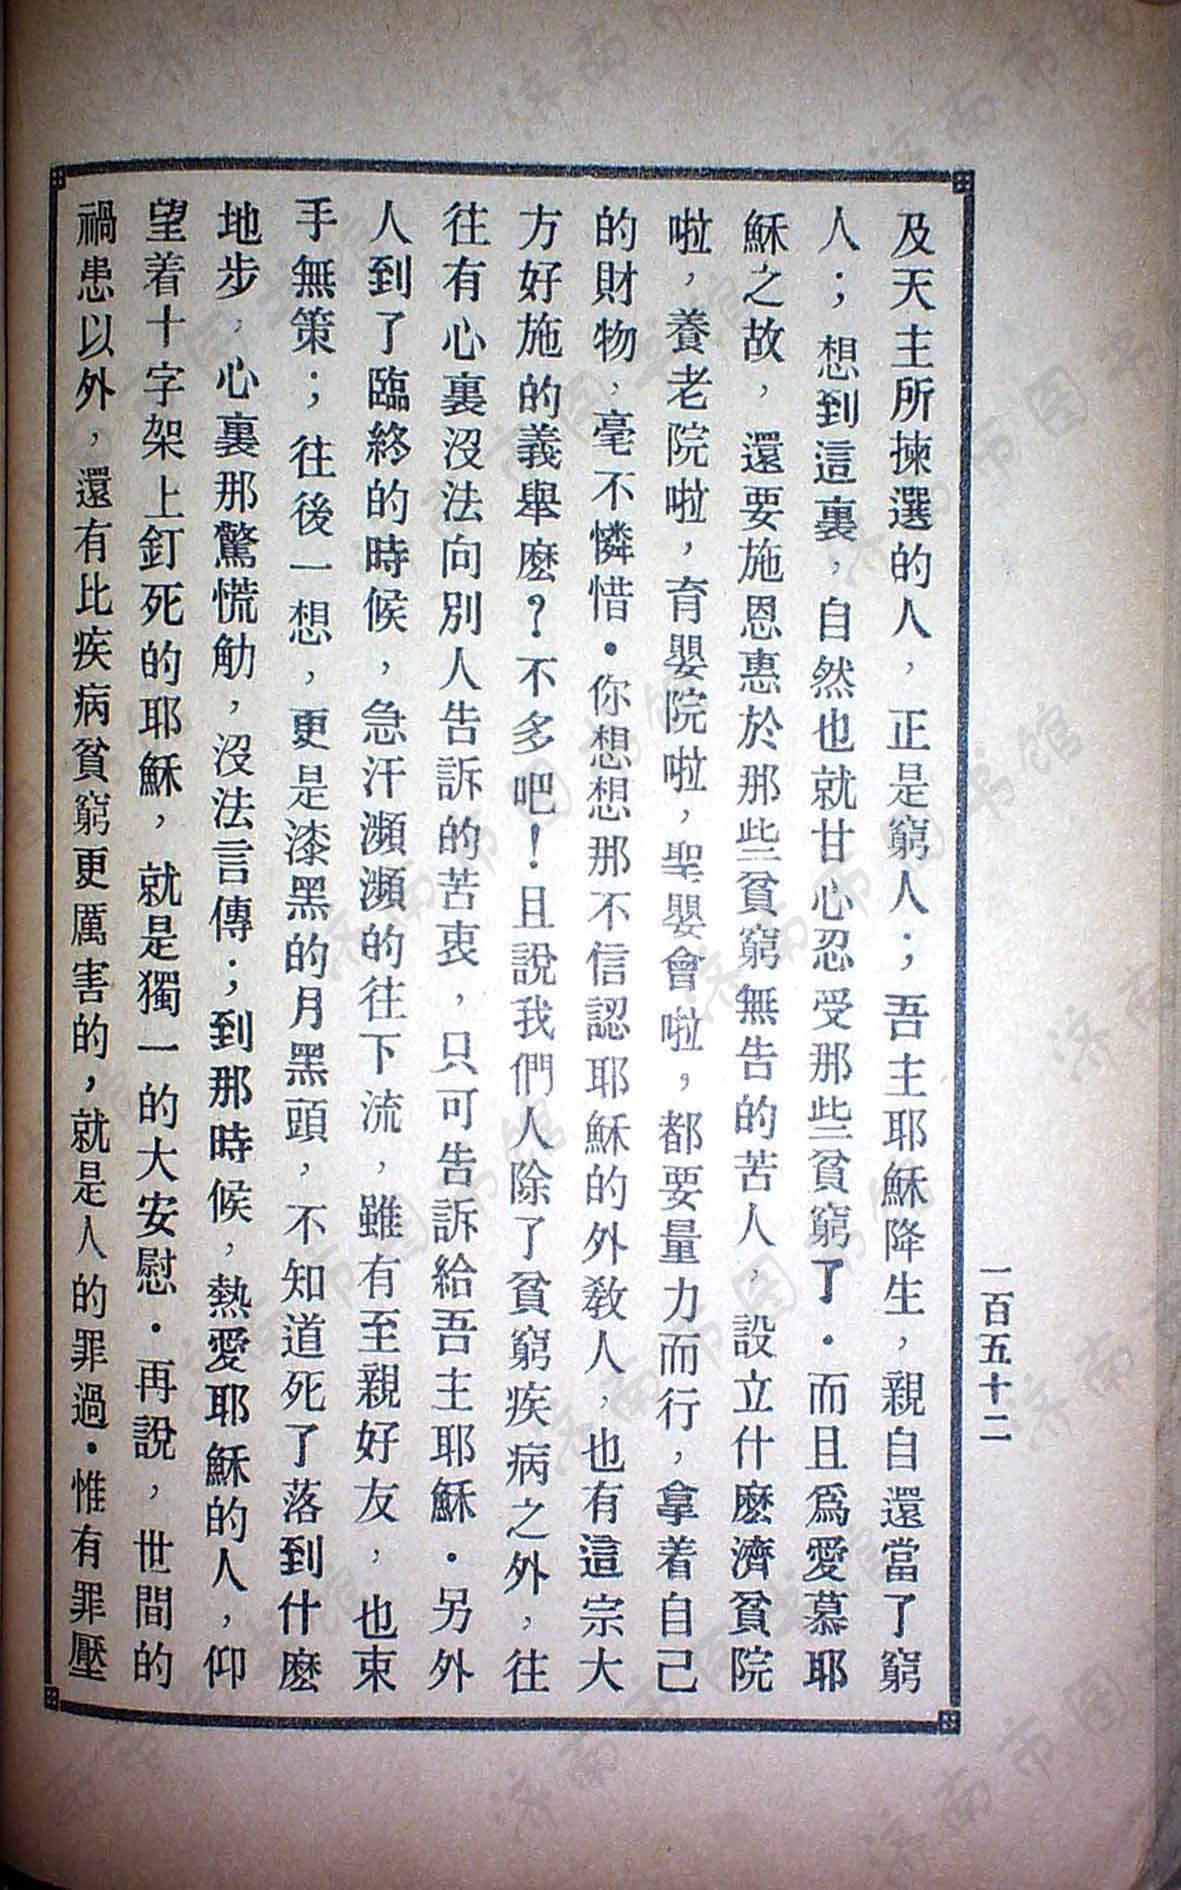 一百五十二
及天主所揀選的人，正是窮人；吾主耶穌降生，親自還當了窮
人；想到這裏，自然也就甘心忍受那些貧窮了．而且爲愛慕耶
穌之故，還要施恩惠於那些貧窮無告的苦人，設立什麽濟貧院
啦，養老院啦，育嬰院啦，聖嬰會啦，都要量力而行，拿着自己
的財物，毫不憐惜．你想想那不信認耶穌的外敎人，也有這宗大
方好施的義舉麽？不多吧！且說我們人除了貧窮疾病之外，往
往有心裏沒法向別人告訴的苦衷，只可告訴給吾主耶穌．另外
人到了臨終的時候，急汗瀕瀕的往下流，雖有至親好友，也束
手無策；往後一想，更是漆黑的月黑頭，不知道死了落到什麽
地步，心裏那驚慌觔，沒法言傳；到那時候，熱愛耶穌的人，仰
望着十字架上釘死的耶穌，就是獨一的大安慰．再說，世間的
禍患以外，還有比疾病貧窮更厲害的，就是人的罪過．惟有罪壓
济南市图书馆